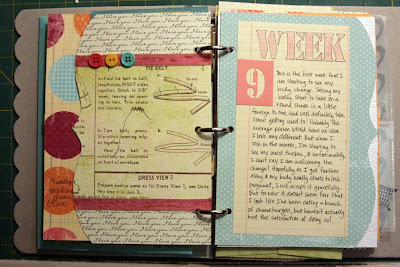 I love you I love you I love you
TIE BELT
Fold tie belt in half,
lengthwise, RIGHT sides
together. Stitch in 5/8"
seam, leaving an opening
to turn. Trim seams
and corners.
b. Turn belt; press.
Slip-stitch opening
together.
Wear the belt
as illustrated
in front of envelope.
DRESS VIEW 2
Prepare bodice same as for Dress View 1, see Units
in Unit 3.
love
WEEK
9
This is the first week that I
am starting to see my
body change. Seeing my
belly start to take on a
round shape is a little
foreign to me, and will definitely take
some getting used to! Probably the
average person would have no idea
I look any different. But when I
look in the mirror, I'm starting to
see my waist thicken, & unfortunately
I can't say I am welcoming the
change! Hopefully as I get further
along & my body really starts to look
pregnant, I will accept it gracefully.
But for now it doesn't seem fair that
I look like I've been eating a bunch
of cheeseburgers, but haven't actually
had the satisfaction of doing so!